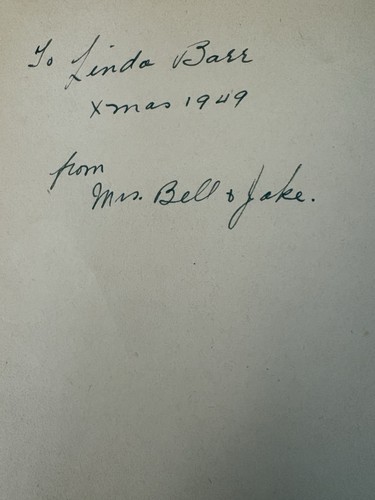 To Linda Barr
Xmas 1949
from
Mrs. Bell & Jake.